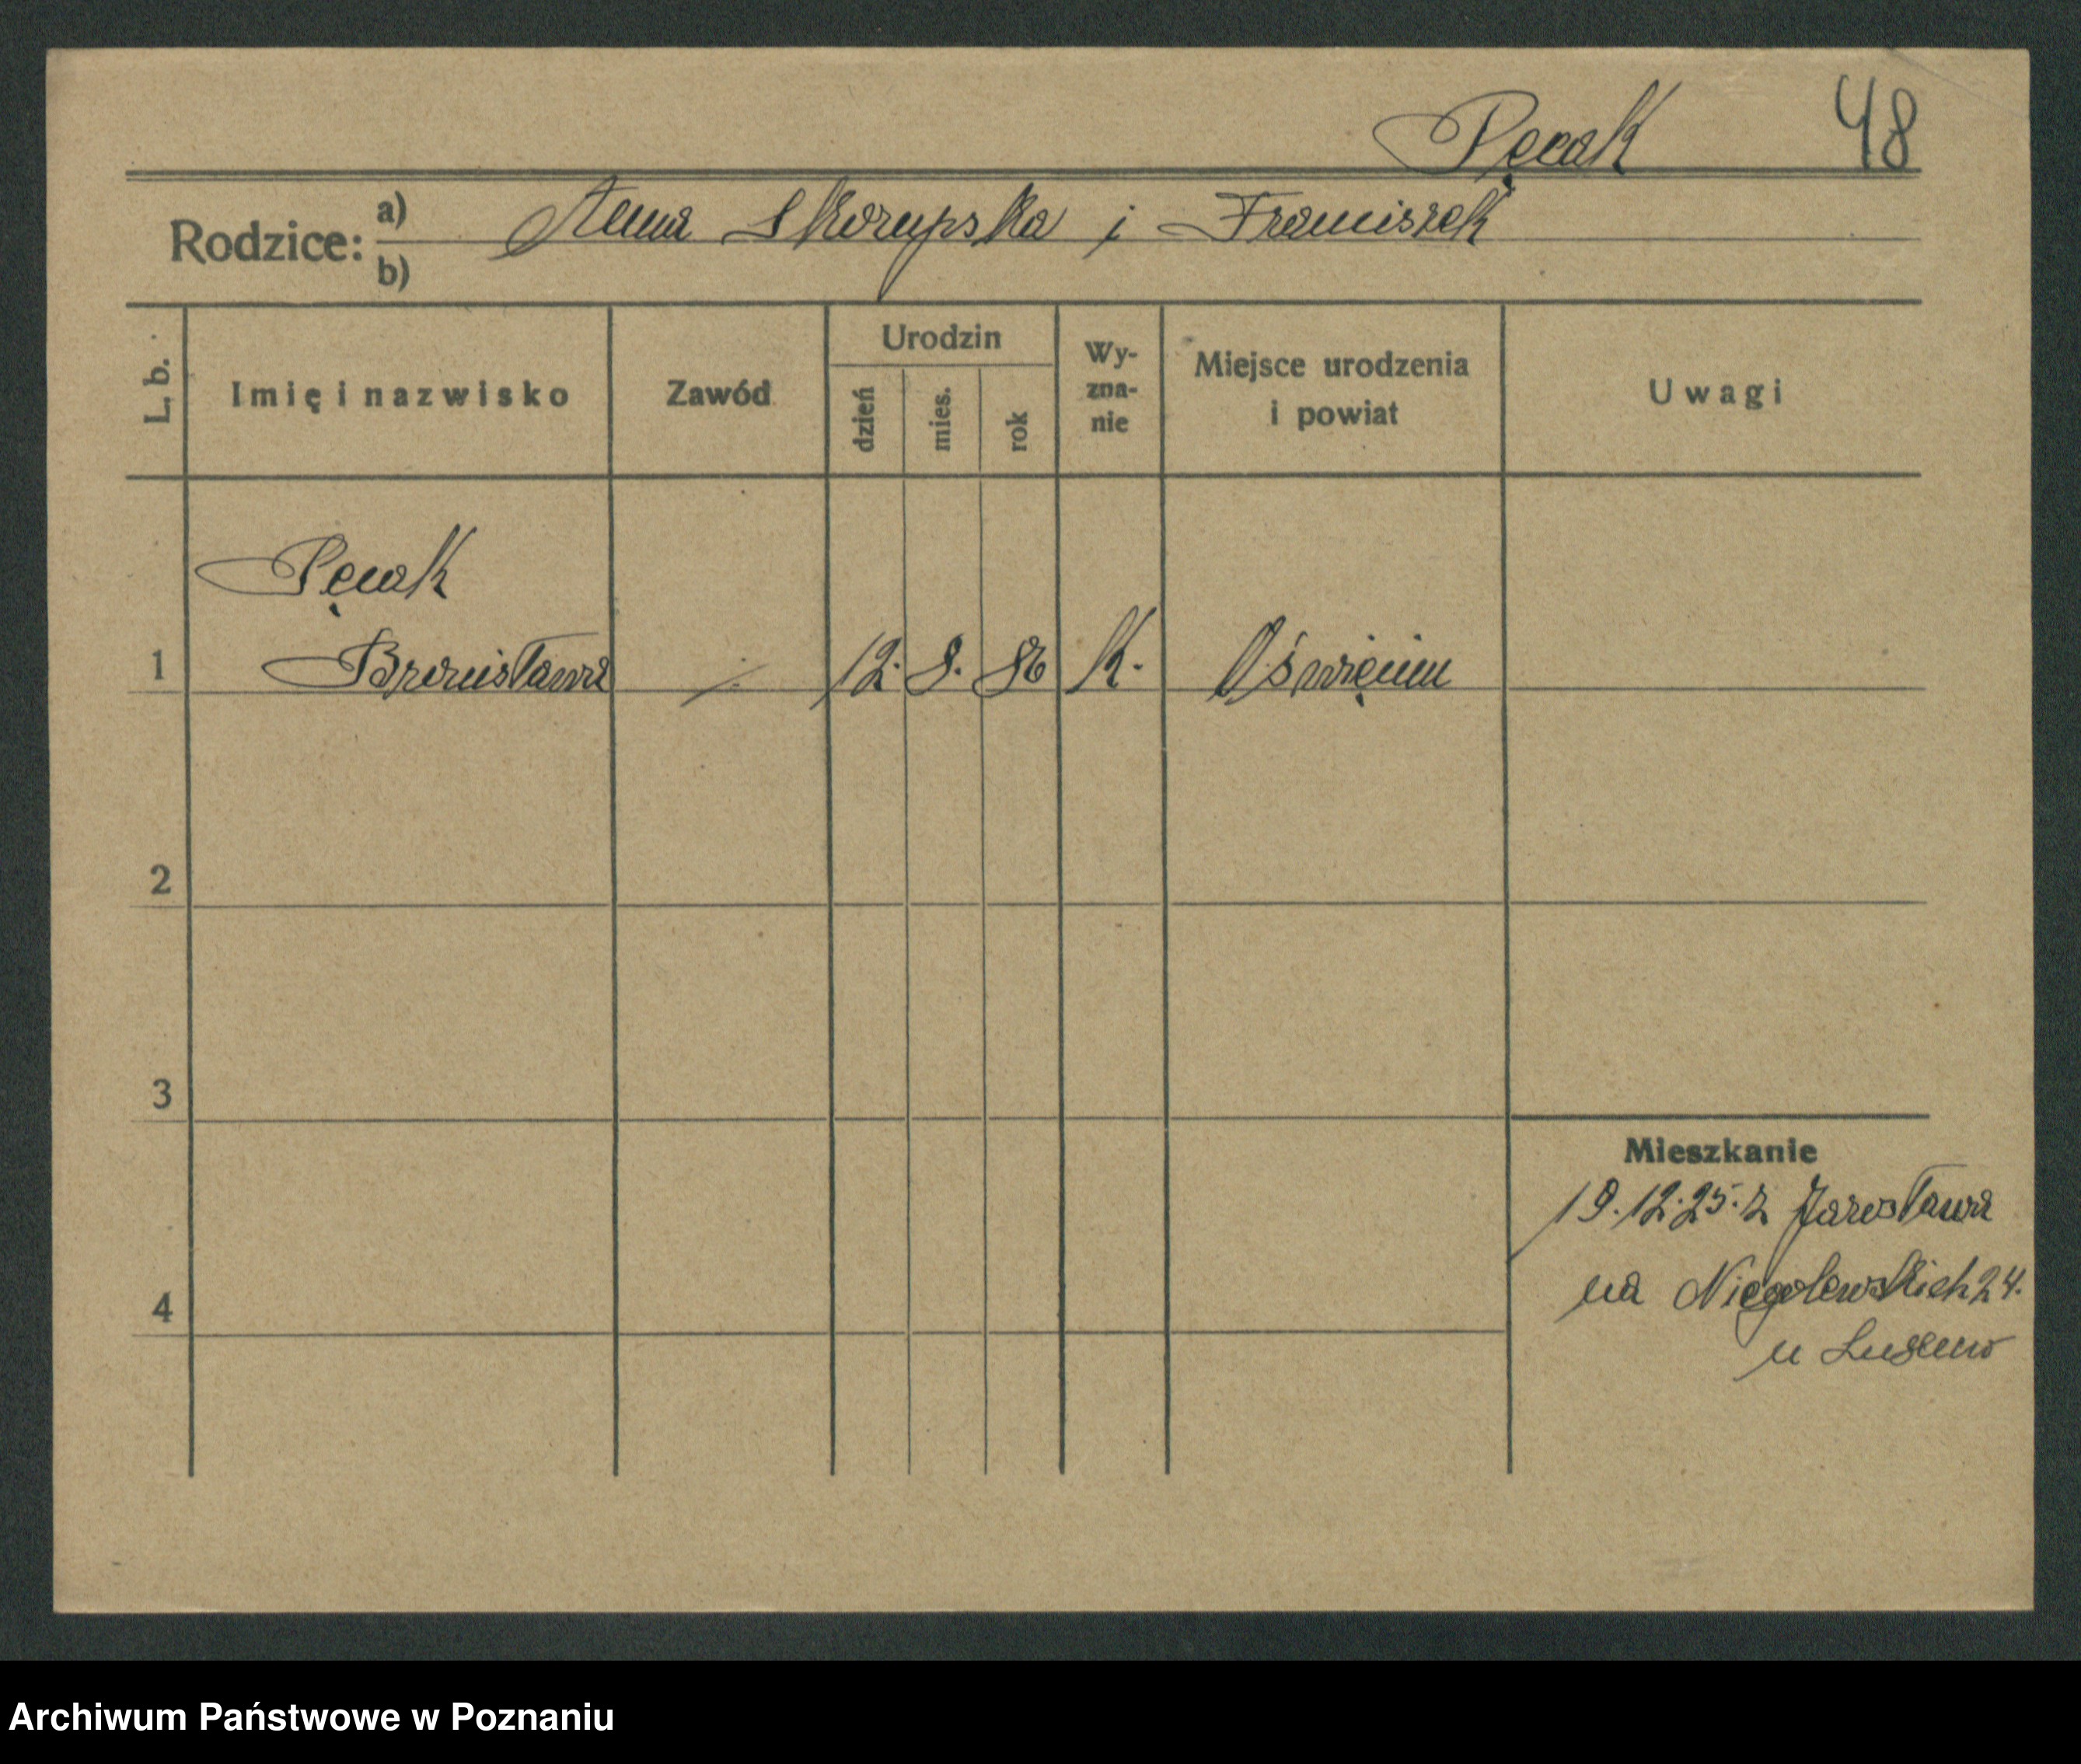 Pęcak 48
Rodzice: a) Anna Skorupska i Franciszek
b)
L. b. Imię i nazwisko Zawód Urodzin dzień mies. rok Wy-zna-nie Miejsce urodzenia i powiat Uwagi
Pęcak
1 Bronisława /. 12. 8. 86 K. Oświęcim
2
3
Mieszkanie
19.12.25. z Jarosława
4 na Niegolewskich 24.
u
Archiwum Państwowe w Poznaniu